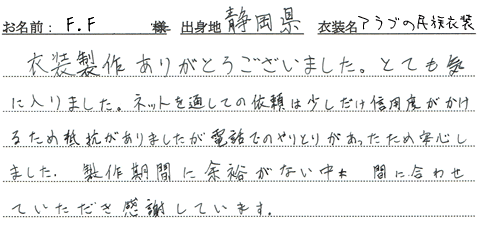 お名前: F.F 様 出身地 静岡県 衣装名 アラブの民族衣装
衣装製作ありがとうございました。とても気
に入りました。ネットを通しての依頼は少しだけ信用度がかけ
るため抵抗がありましたが電話でのやりとりがあったため安心し
ました. 製作期間に余裕がない中 間に合わせ
ていただき感謝しています.